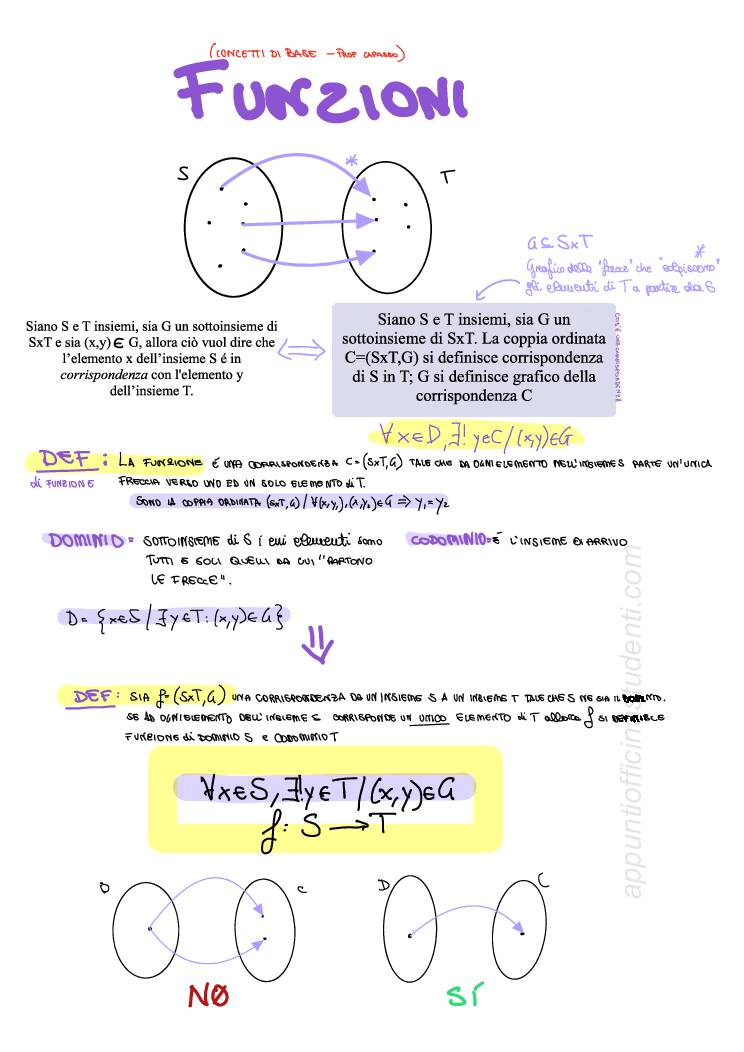 (CONCETTI DI BASE - PROF CAPASSO)
FUNZIONI
S
*
T
G⊆SxT
*
Grafico delle "frecce" che "colpiscono"
gli elementi di T a partire da S
Siano S e T insiemi, sia G un sottoinsieme di
SxT e sia (x,y) ∈ G, allora ciò vuol dire che
l'elemento x dell'insieme S é in
corrispondenza con l'elemento y
dell'insieme T.
Siano S e T insiemi, sia G un
sottoinsieme di SxT. La coppia ordinata
C=(SxT,G) si definisce corrispondenza
di S in T; G si definisce grafico della
corrispondenza C
COS'È UNA CORRISPONDENZA
∀x∈D,∃!y∈C/(x,y)∈G
DEF: LA FUNZIONE É UNA CORRISPONDENZA C=(SxT,G) TALE CHE DA OGNI ELEMENTO NELL'INSIEME S PARTE UN'UNICA
di FUNZIONE FRECCIA VERSO UNO ED UN SOLO ELEMENTO di T.
SONO LA COPPIA ORDINATA (SxT,G)/∀(x,y₁),(x,y₂)∈G ⇒ y₁=y₂
DOMINIO = SOTTOINSIEME di S i cui elementi sono
TUTTI E SOLI QUELLI DA CUI "PARTONO
LE FRECCE".
CODOMINIO=É L'INSIEME DI ARRIVO
D={x∈S/∃y∈T:(x,y)∈G}
⇓
DEF: SIA f=(SxT,G) UNA CORRISPONDENZA DA UN INSIEME S A UN INSIEME T TALE CHE S NE SIA IL DOMINIO.
SE AD OGNI ELEMENTO DELL'INSIEME S CORRISPONDE UN UNICO ELEMENTO di T allora f SI DEFINISCE
FUNZIONE di DOMINIO S e CODOMINIO T
∀x∈S,∃!y∈T/(x,y)∈G
f: S→T
D
C
D
C
NO
SÍ
appuntiofficinastudenti.com